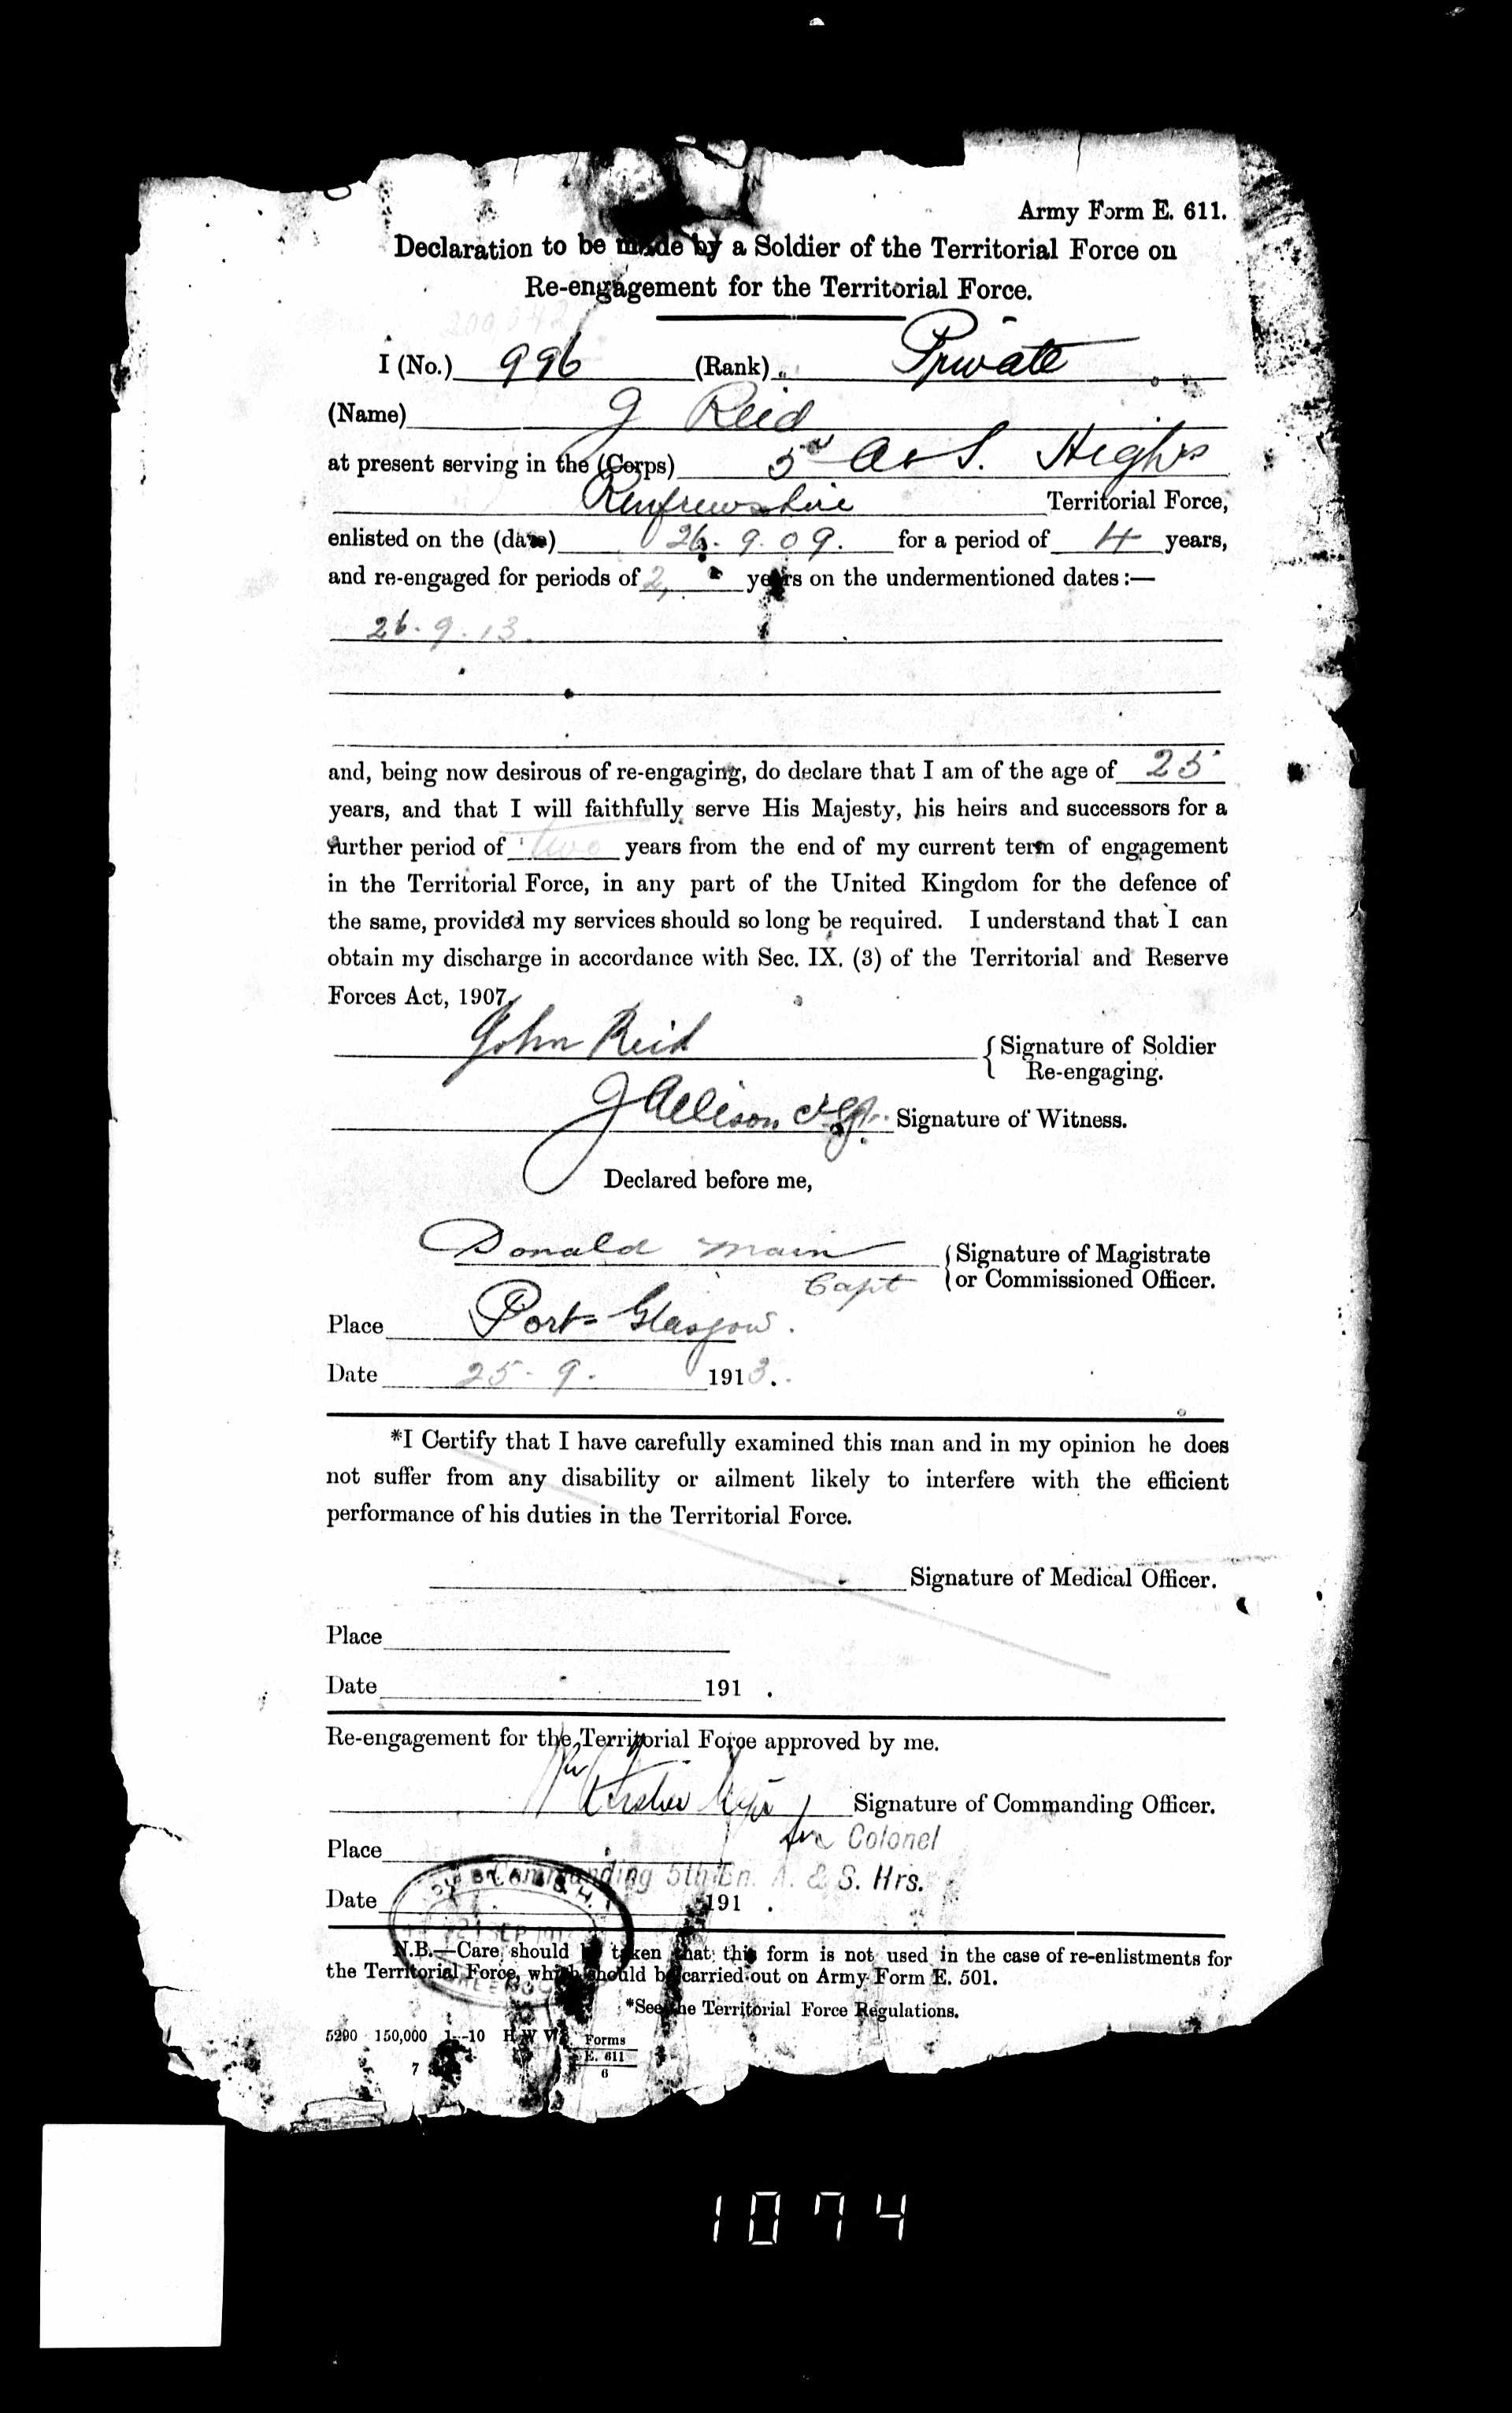 Army Form E. 611.
Declaration to be made by a Soldier of the Territorial Force on
Re-engagement for the Territorial Force.
I (No.) 996 (Rank) Private
(Name) J Reid
at present serving in the (Corps) 5th A & S. Highrs
Renfrewshire Territorial Force,
enlisted on the (date) 26.9.09. for a period of 4 years,
and re-engaged for periods of 2, years on the undermentioned dates:—
26.9.13
and, being now desirous of re-engaging, do declare that I am of the age of 25
years, and that I will faithfully serve His Majesty, his heirs and successors for a
further period of two years from the end of my current term of engagement
in the Territorial Force, in any part of the United Kingdom for the defence of
the same, provided my services should so long be required. I understand that I can
obtain my discharge in accordance with Sec. IX. (3) of the Territorial and Reserve
Forces Act, 1907.
John Reid Signature of Soldier
Re-engaging.
J Allison Signature of Witness.
Declared before me,
Donald Main Signature of Magistrate
Capt or Commissioned Officer.
Place Port-Glasgow.
Date 25.9. 1913.
*I Certify that I have carefully examined this man and in my opinion he does
not suffer from any disability or ailment likely to interfere with the efficient
performance of his duties in the Territorial Force.
Signature of Medical Officer.
Place
Date 191 .
Re-engagement for the Territorial Force approved by me.
Signature of Commanding Officer.
for Colonel
Place
Commanding 5th Bn. A. & S. Hrs.
Date 191 .
N.B.—Care should be taken that this form is not used in the case of re-enlistments for
the Territorial Force, which should be carried out on Army Form E. 501.
*See the Territorial Force Regulations.
5290 150,000 1—10 H W V Forms
E. 611
7 6
1074